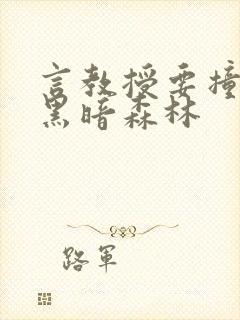 言教授要撞
黑暗森林
路军